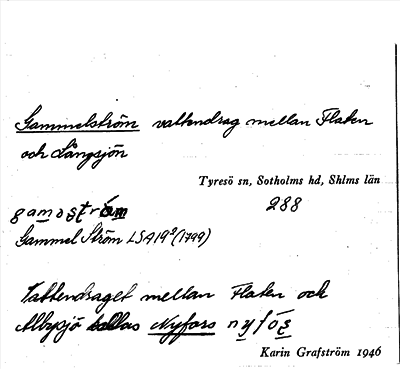 Gammelström vattendrag mellan Flaten
och Långsjön
Tyresö sn, Sotholms hd, Shlms län
288
gamostróm
Gammel Ström LSA19²(1799)
Vattendraget mellan Flaten och
Albysjö kallas Nyfors nyfós
Karin Grafström 1946